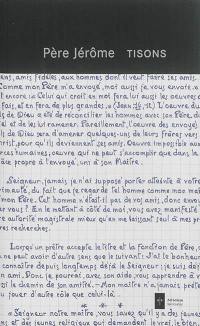 Père Jérôme TISONS
ens, amis fidèles, aux hommes dont il veut faire ses amis.
Comme mon Père m'a envoyé, moi aussi je vous envoie. »
encore : « Celui qui croit en moi fera, lui aussi les oeuvres
fais, et en fera de plus grandes. » (Jean 14, 12.) L'oeuvre du
ls de Dieu a été de réconcilier les hommes avec son Père, de
et de les lui ramener. Pareillement, l'oeuvre des envoyés
ls de Dieu sera d'amener quelques-uns de leurs frères vers
rist, pour qu'ils deviennent ses amis. Oeuvre impossible aux
ces humaines, oeuvre qui ne peut s'accomplir que dans la
ce propre à l'envoyé, uni à son Maître.
Seigneur, jamais je n'ai supposé porter atteinte à votre
rimauté, du fait que je regarde tel homme comme mon maître
mon Père. Cet homme n'était-il pas de vos amis, donc envoyé
r vous ? En le mettant à côté de moi, vous avez manifesté
re autorité magistrale mieux qu'en me laissant seul à mes pro
res recherches.
Lorsqu'un prêtre accepte le titre et la fonction de Père,
ne peut avoir d'autre sens que le suivant : J'ai le bonheur
connaître depuis longtemps déjà le Seigneur ; je suis déjà
n ami. Donc je pourrai, avec son aide, vous apprendre à
i le chemin de son amitié. Mon maître n'a jamais prétendu
jouer d'autre rôle que celui-là.
« Seigneur notre maître, vous savez qu'il y a des jeunes
et des jeunes religieux qui demandent, le vrai, le bien